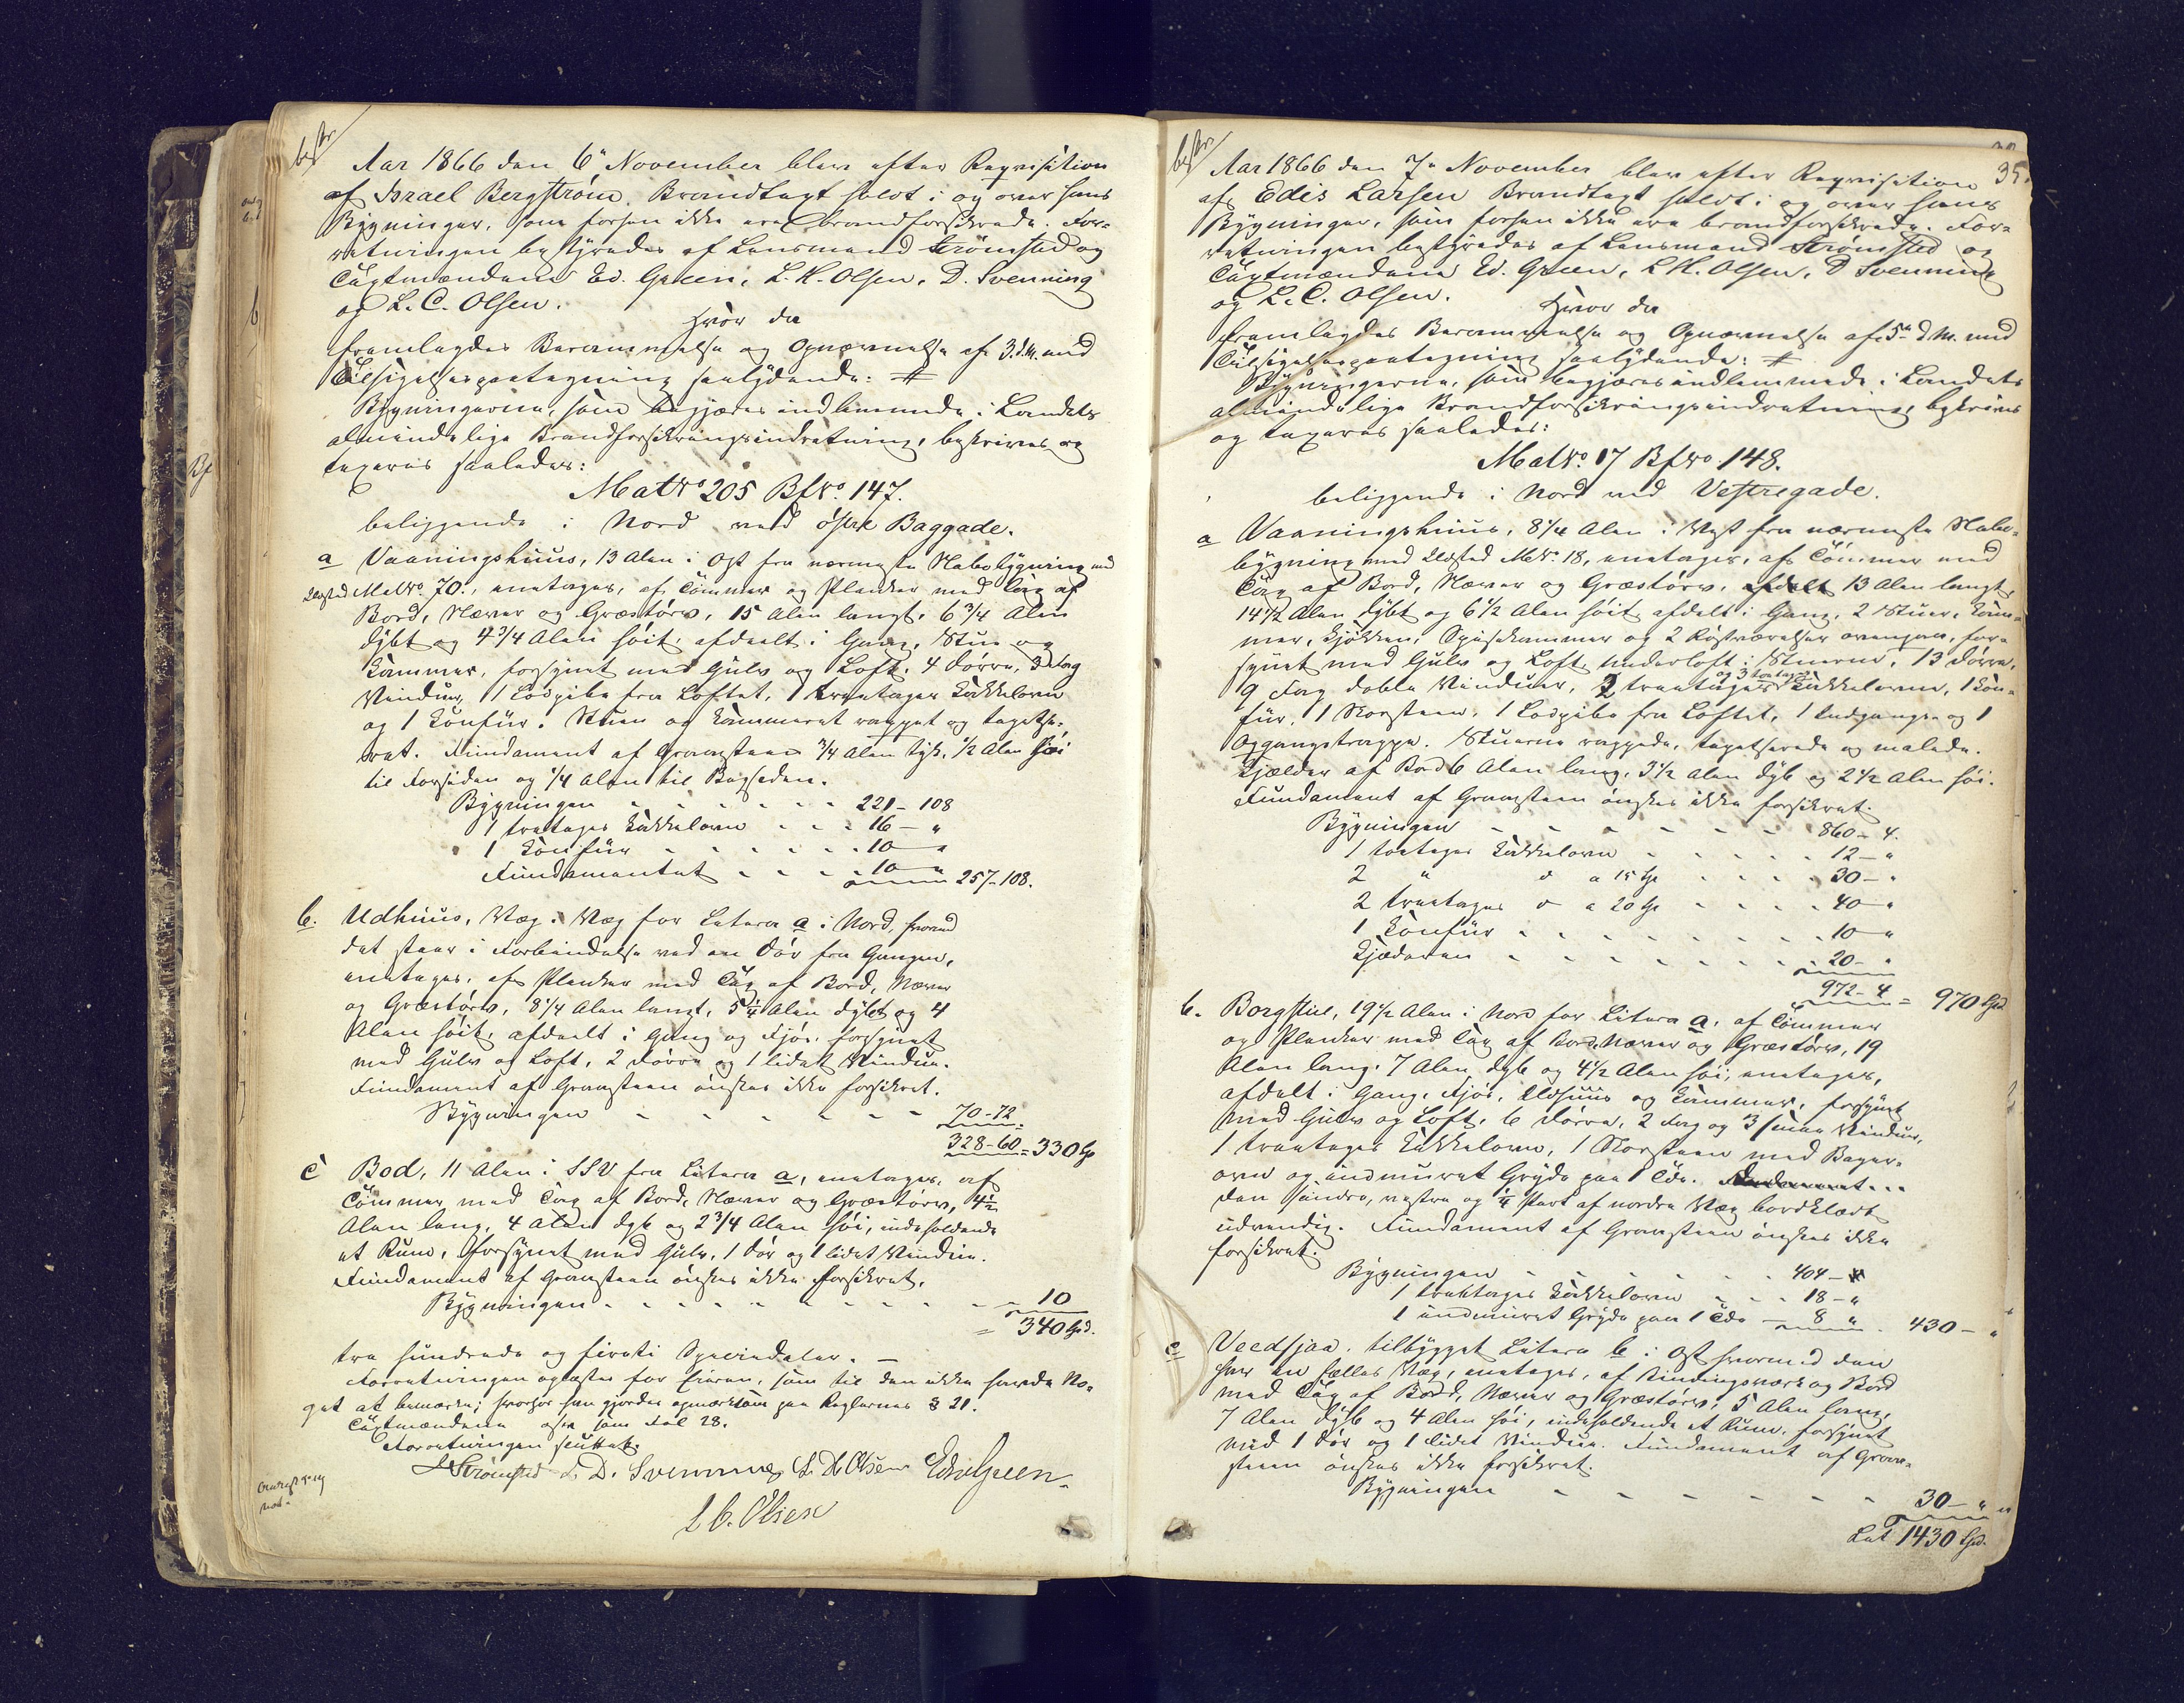 Aar 1866 den 6te November blev efter Reqvisition
af Israel Bergstrøm Brandtaxt holdt i og over hans
Bygninger, som forhen ikke ere brandforsikrede. For-
retningen bestyredes af Lensmand Strömsted og
Taxtmændene Ed. Green, L. H. Olsen, D. Svenning
og L. C. Olsen.
Hvor da
fremlagdes Berammelse og Opnævnelse af 3. d. M. med
Tilsigelsespaategning saalydende: #
Bygningerne, som begjæres indlemmede i Landets
almindelige Brandforsikringsindretning, beskrives og
taxeres saaledes:
Mat No 205 Bf No. 147.
beliggende i Nord ved østre Baggade.
a Vaaningshuus, 13 Alen i Ost fra nærmeste Nabobygning med
Ildsted Mat No. 70., eneetages, af Tømmer og Planker med Tag af
Bord, Næver og Græstørv, 15 Alen langt, 6 3/4 Alen
dybt og 4 3/4 Alen høit, afdeelt i Gang, Stue og
Kammer, forsynet med Gulv og Loft, 4 Dørre, 3 Fag
Vinduer, 1 Lodpibe fra Loftet, 1 treetages Kakkelovn
og 1 Komfür. Stuen og Kammeret rappet og tapetse-
ret. Fundament af Graasteen 3/4 Alen tyk, 1/2 Alen høi
til Forsiden og 1/4 Alen til Bagsiden.
Bygningen - - - - - - 221 - 108
1 treetages Kakkelovn - - - 16 - "
1 Komfür - - - - - - 10 - "
Fundamentet - - - - 10 - " 257 - 108.
b. Udhuus, Væg i Væg for Litera a i Nord, hvormed
det staar i Forbindelse ved en Dør fra Gangen,
eneetages, af Planker med Tag af Bord, Næver
og Græstørv, 8 1/4 Alen langt, 5 1/4 Alen dybt og 4
Alen høit, afdeelt i Gang og Fjøs, forsynet
med Gulv og Loft, 2 Dørre og 1 lidet Vindue.
Fundament af Graasteen ønskes ikke forsikret.
Bygningen - - - - - - - 70 - 72
328 - 60 = 330 Spd
c Bod, 11 Alen i SSV fra Litera a, eneetages, af
Tømmer, med Tag af Bord, Næver og Græstørv, 4 1/2
Alen lang, 4 Alen dyb og 2 3/4 Alen høi, indeholdende
et Rum, forsynet med Gulv, 1 Dør og 1 lidet Vindue.
Fundament af Graasteen ønskes ikke forsikret.
Bygningen - - - - - - - - - - 10
= 340 Spd.
tre hundrede og fireti Speciedaler. -
Forretningen oplæstes for Eieren, som til den ikke havde No-
get at bemærke; hvorhos han gjordes opmærksom paa Reglernes § 21.
Taxtmændene som Fol 28.
Forretningen sluttet.
Strømsted D. Svenning L. H. Olsen Edw Green
L C. Olsen
35.
Aar 1866 den 7de November blev efter Reqvisition
af Edis Larsen Brandtaxt holdt i og over hans
Bygninger, som forhen ikke ere brandforsikrede. For-
retningen bestyredes af Lensmand Strømsted og
Taxtmændene Ed. Green, L H. Olsen, D Svenning
og L. C. Olsen.
Hvor da
fremlagdes Berammelse og Opnævnelse af 5te d. M. med
Tilsigelsespaategning saalydende: #
Bygningerne, som begjæres indlemmede i Landets
almindelige Brandforsikringsindretning, beskrives
og taxeres saaledes:
Mat No. 17 Bf No 148.
beliggende i Nord ved Vestregade.
a Vaaningshuus, 8 1/4 Alen i Vest fra nærmeste Nabo-
bygning med Ildsted M No. 18, eneetages, af Tømmer med
Tag af Bord, Næver og Græstørv, afdelt 13 Alen langt,
14 1/2 Alen dybt og 6 1/2 Alen høit, afdelt i Gang, 2 Stuer, Kam-
mer, Kjøkken, Spisekammer og 2 Qvistværelser ovenpaa, for-
synet med Gulv og Loft, Underloft i Stuerne, 13 Dørre,
9 Fag dobbe Vinduer, 2 treetages og 3 toetages Kakkelovne, 1 Kom-
für, 1 Skorsteen, 1 Lodpibe fra Loftet, 1 Indgangs- og 1
Opgangstrappe. Stuerne rappede, tapetserede og malede.
Kjælder af Bord 6 Alen lang, 3 1/2 Alen dyb og 2 1/2 Alen høi.
Fundament af Graasteen ønskes ikke forsikret.
Bygningen - - - - - - 860 - 4.
1 toetages Kakkelovn - - - - - 12 - "
2 " d a 15 Sp - - - - 30 - "
2 treetages d a 20 Sp - - - - 40 "
1 Komfür - - - - - - - 10 "
Kjælderen - - - - - - - 20 - "
972 - 4 = 970 Spd
b. Borgstue, 19 1/2 Alen i Nord for Litera a, af Tømmer
og Planker med Tag af Bord, Næver og Græstørv, 19
Alen lang, 7 Alen dyb og 4 1/2 Alen høi, eneetages,
afdelt i Gang, Fjøs, Ildhuus og Kammer, forsynet
med Gulv og Loft, 6 Dørre, 2 Fag og 3 smaa Vinduer,
1 treetages Kakkelovn, 1 Skorsteen med Bager-
ovn og indmuret Gryde paa 1 Tde. Fundament...
Den søndre, vestre og 1/4 Part af nordre Væg bordklædt
udvendig. Fundament af Graasteen ønskes ikke
forsikret.
Bygningen - - - - - - - 404 - "
1 treetages Kakkelovn - - - 18 - "
1 indmuret Gryde paa 1 Tde - 8 " . 430 - "
c Veedsjaa, tilbygget Litera b i Ost hvormed den
har en fælles Væg, eneetages, af Bindingsværk og Bord
med Tag af Bord, Næver og Græstørv, 5 Alen lang,
7 Alen dyb og 4 Alen høi, indeholdende et Rum, forsynet
med 1 Dør og 1 lidet Vindue. Fundament af Graa-
steen ønskes ikke forsikret.
Bygningen - - - - - - - 30 - "
Lat 1430 Spd.